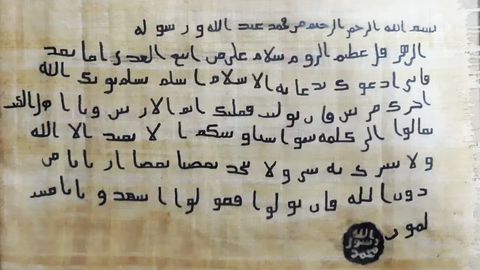 بسم الله الرحمن الرحيم من محمد عبد الله ورسوله
الى هرقل عظيم الروم سلام على من اتبع الهدى اما بعد
فانى ادعوك بدعاية الاسلام اسلم تسلم يوتك الله
اجرك مرتين فان توليت فعليك اثم الاريسين ويا اهل الكتب
تعالوا الى كلمه سوا بيننا وبينكم الا نعبد الا الله
ولا نشرك به شيا ولا يتخذ بعضنا بعضا اربابا من
دون الله فان تولوا فقولوا اشهدوا بانا مس
لمون
الله
رسول
محمد